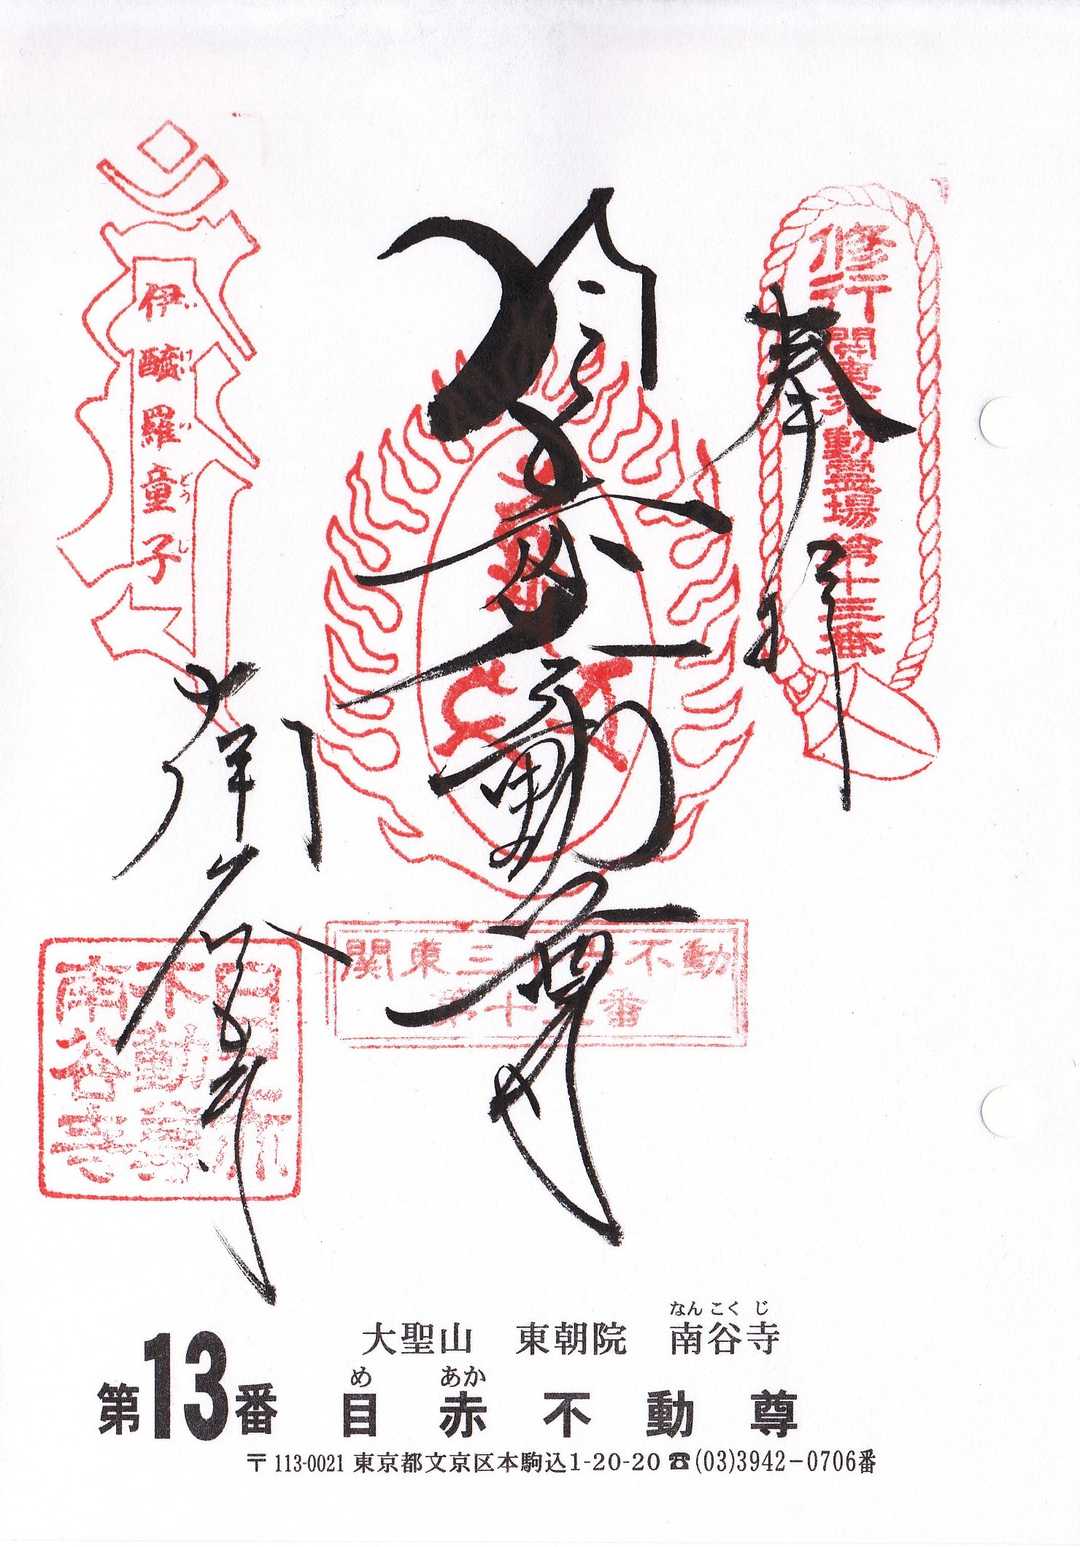 奉拝
修行関東不動霊場第十三番
目赤不動尊
伊醯羅童子
いけいらどうじ
南谷寺
関東三十六不動
第十三番
目赤
不動尊
南谷寺
なんこくじ
大聖山 東朝院 南谷寺
めあか
第13番 目赤不動尊
〒113-0021 東京都文京区本駒込1-20-20 ☎(03)3942-0706番